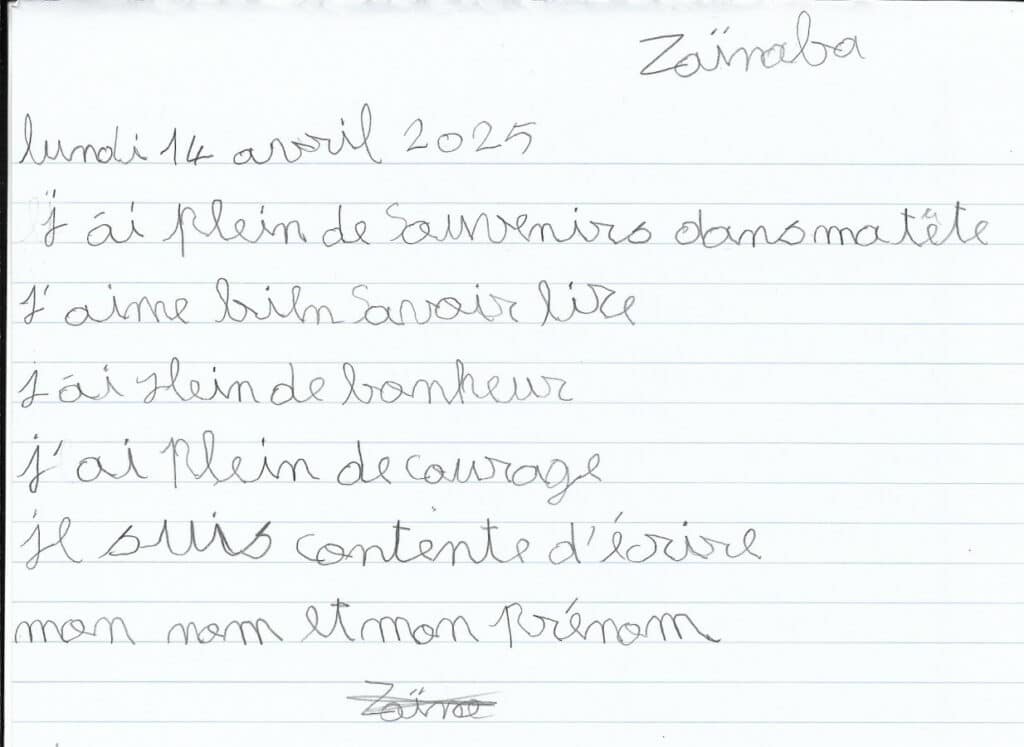 Zaïnaba
lundi 14 avril 2025
j'ai plein de souvenirs dans ma tête
j'aime bien savoir lire
j'ai plein de bonheur
j'ai plein de courage
je suis contente d'écrire
mon nom et mon prénom